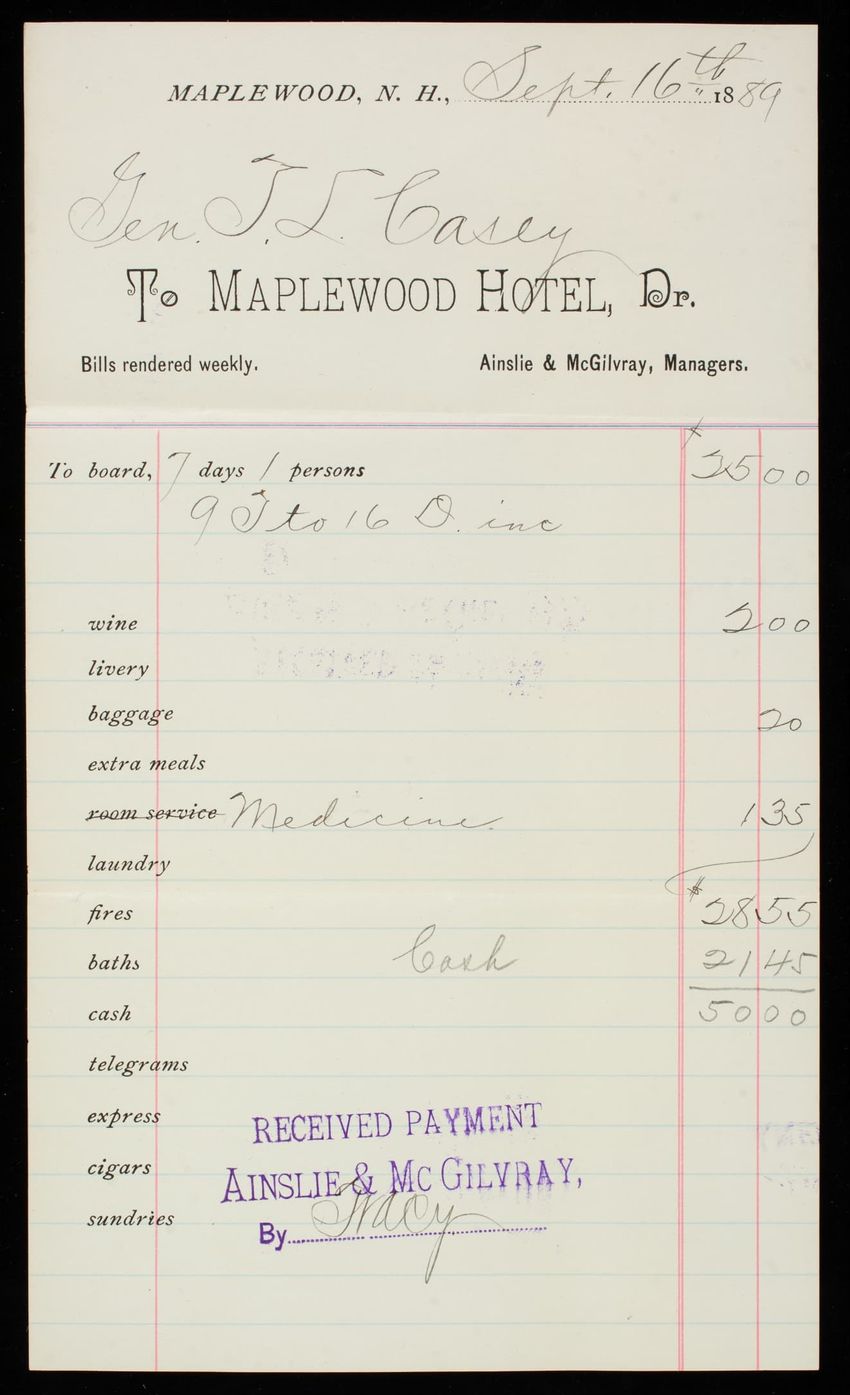 MAPLEWOOD, N. H., Sept. 16th 1889
Gen. T. L. Casey
To MAPLEWOOD HOTEL, Dr.
Bills rendered weekly. Ainslie & McGilvray, Managers.
To board, 7 days 1 persons $ 25 00
9 T to 16 D. inc
wine 2 00
livery
baggage 20
extra meals
room service Medicine 1 35
laundry
fires $ 28 55
baths Cash 21 45
cash 50 00
telegrams
express
RECEIVED PAYMENT
cigars
AINSLIE & MC GILVRAY,
sundries
By Tracy